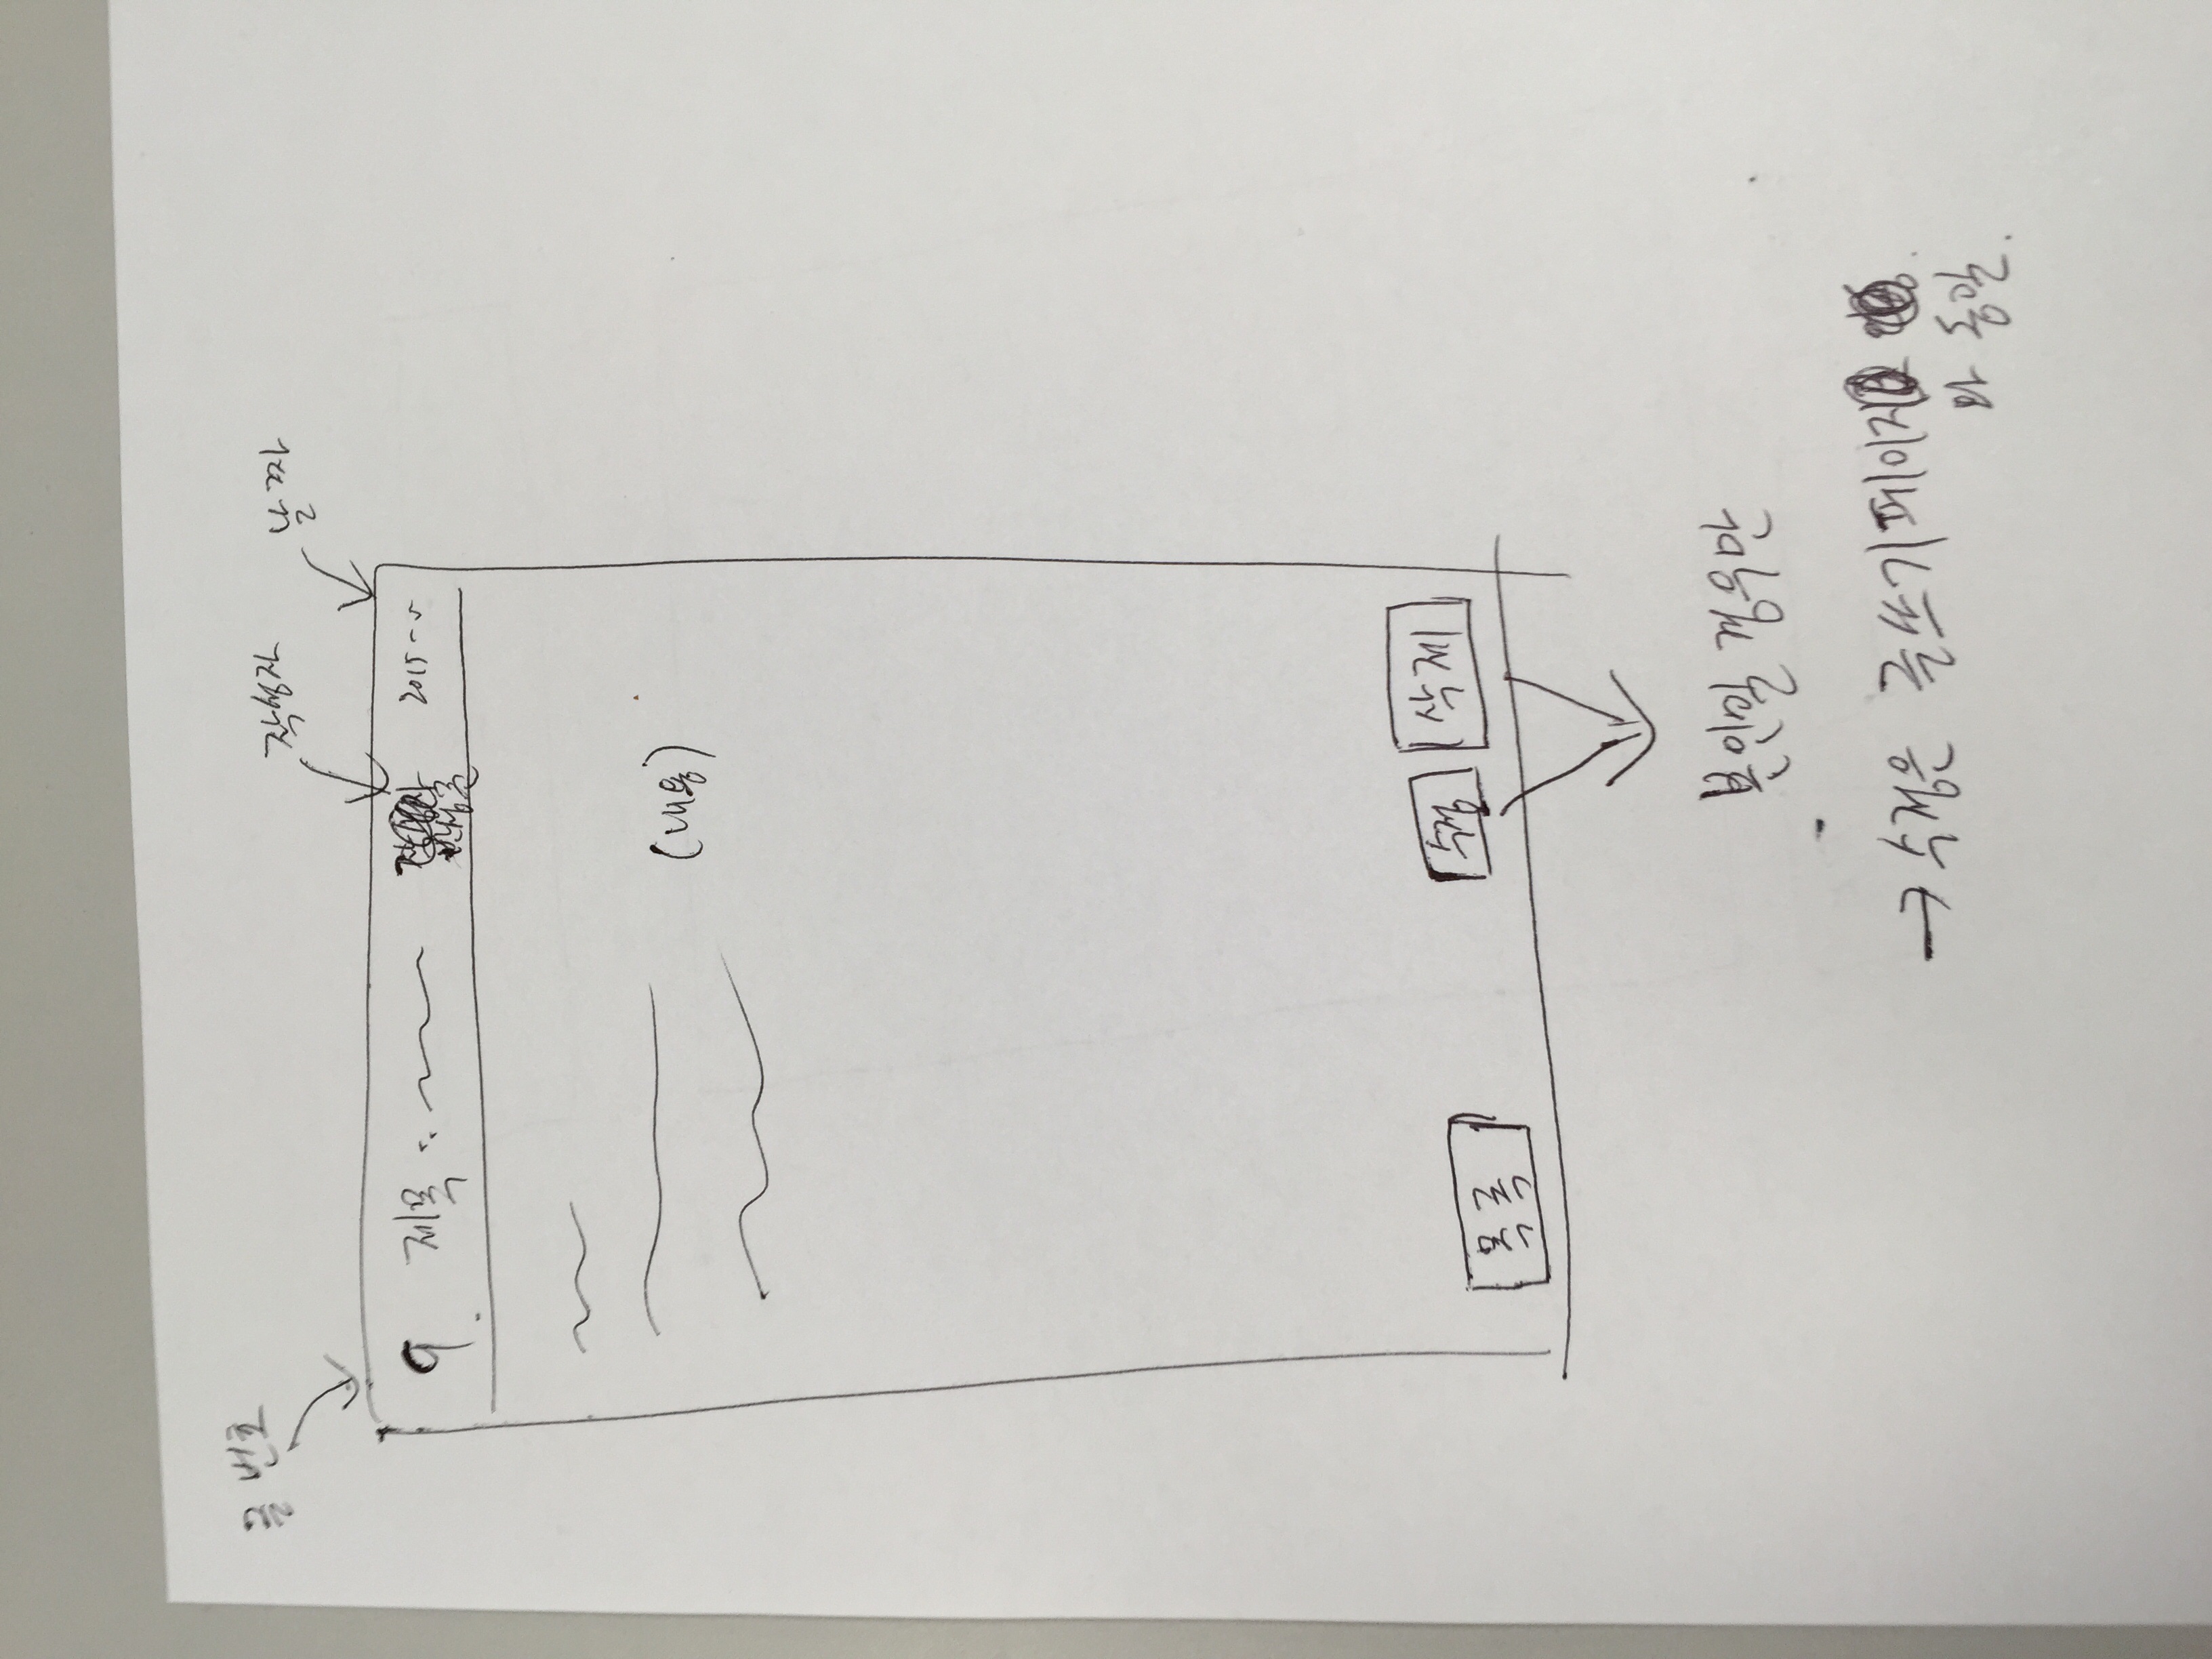 글 번호
작성자
날짜
9. 제목 : 2015 -
(내용)
수정 삭제
목록
본인일 경우만
→ 수정은 글쓰기페이지
와 동일.